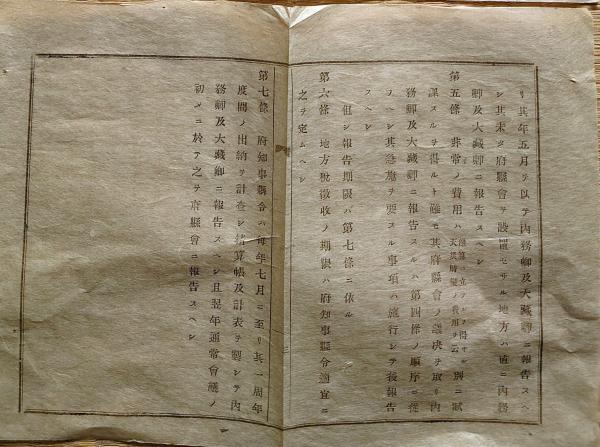 リ其年五月ヲ以テ内務卿及大藏卿ニ報告スヘ
シ其未タ府縣會ヲ設置セサル地方ハ直ニ内務
卿及大藏卿ニ報告スヘシ
第五條 非常ノ費用ハ豫算ニ立ツルヲ得サル天災時變ノ費用ヲ云別ニ賦
課スルヲ得ルト雖モ其府縣會ノ議決ヲ取リ内
務卿及大藏卿ニ報告スルハ第四條ノ順序ニ從
フヘシ其急施ヲ要スル事項ハ施行シテ後報告
スヘシ
但シ報告期限ハ第七條ニ依ル
第六條 地方税徴收ノ期限ハ府知事縣令適宜ニ
之ヲ定ムヘシ
第七條 府知事縣令ハ毎年七月ニ至リ其一周年
度間ノ出納ヲ計査シ決算帳及計表ヲ製シテ内
務卿及大藏卿ニ報告スヘシ且翌年通常會議ノ
初メニ於テ之ヲ府縣會ニ報告スヘシ